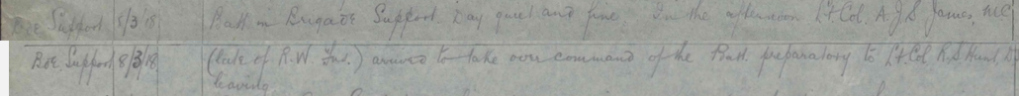 Bde Support 8/3/18 Batt in Brigade Support. Day quiet and fine. In the afternoon Lt Col. A.J.S James, MC
Bde Support 8/3/18 (late of R.W Fus.) arrived to take over command of the Batt. preparatory to Lt. Col R.S Hunt,
leaving